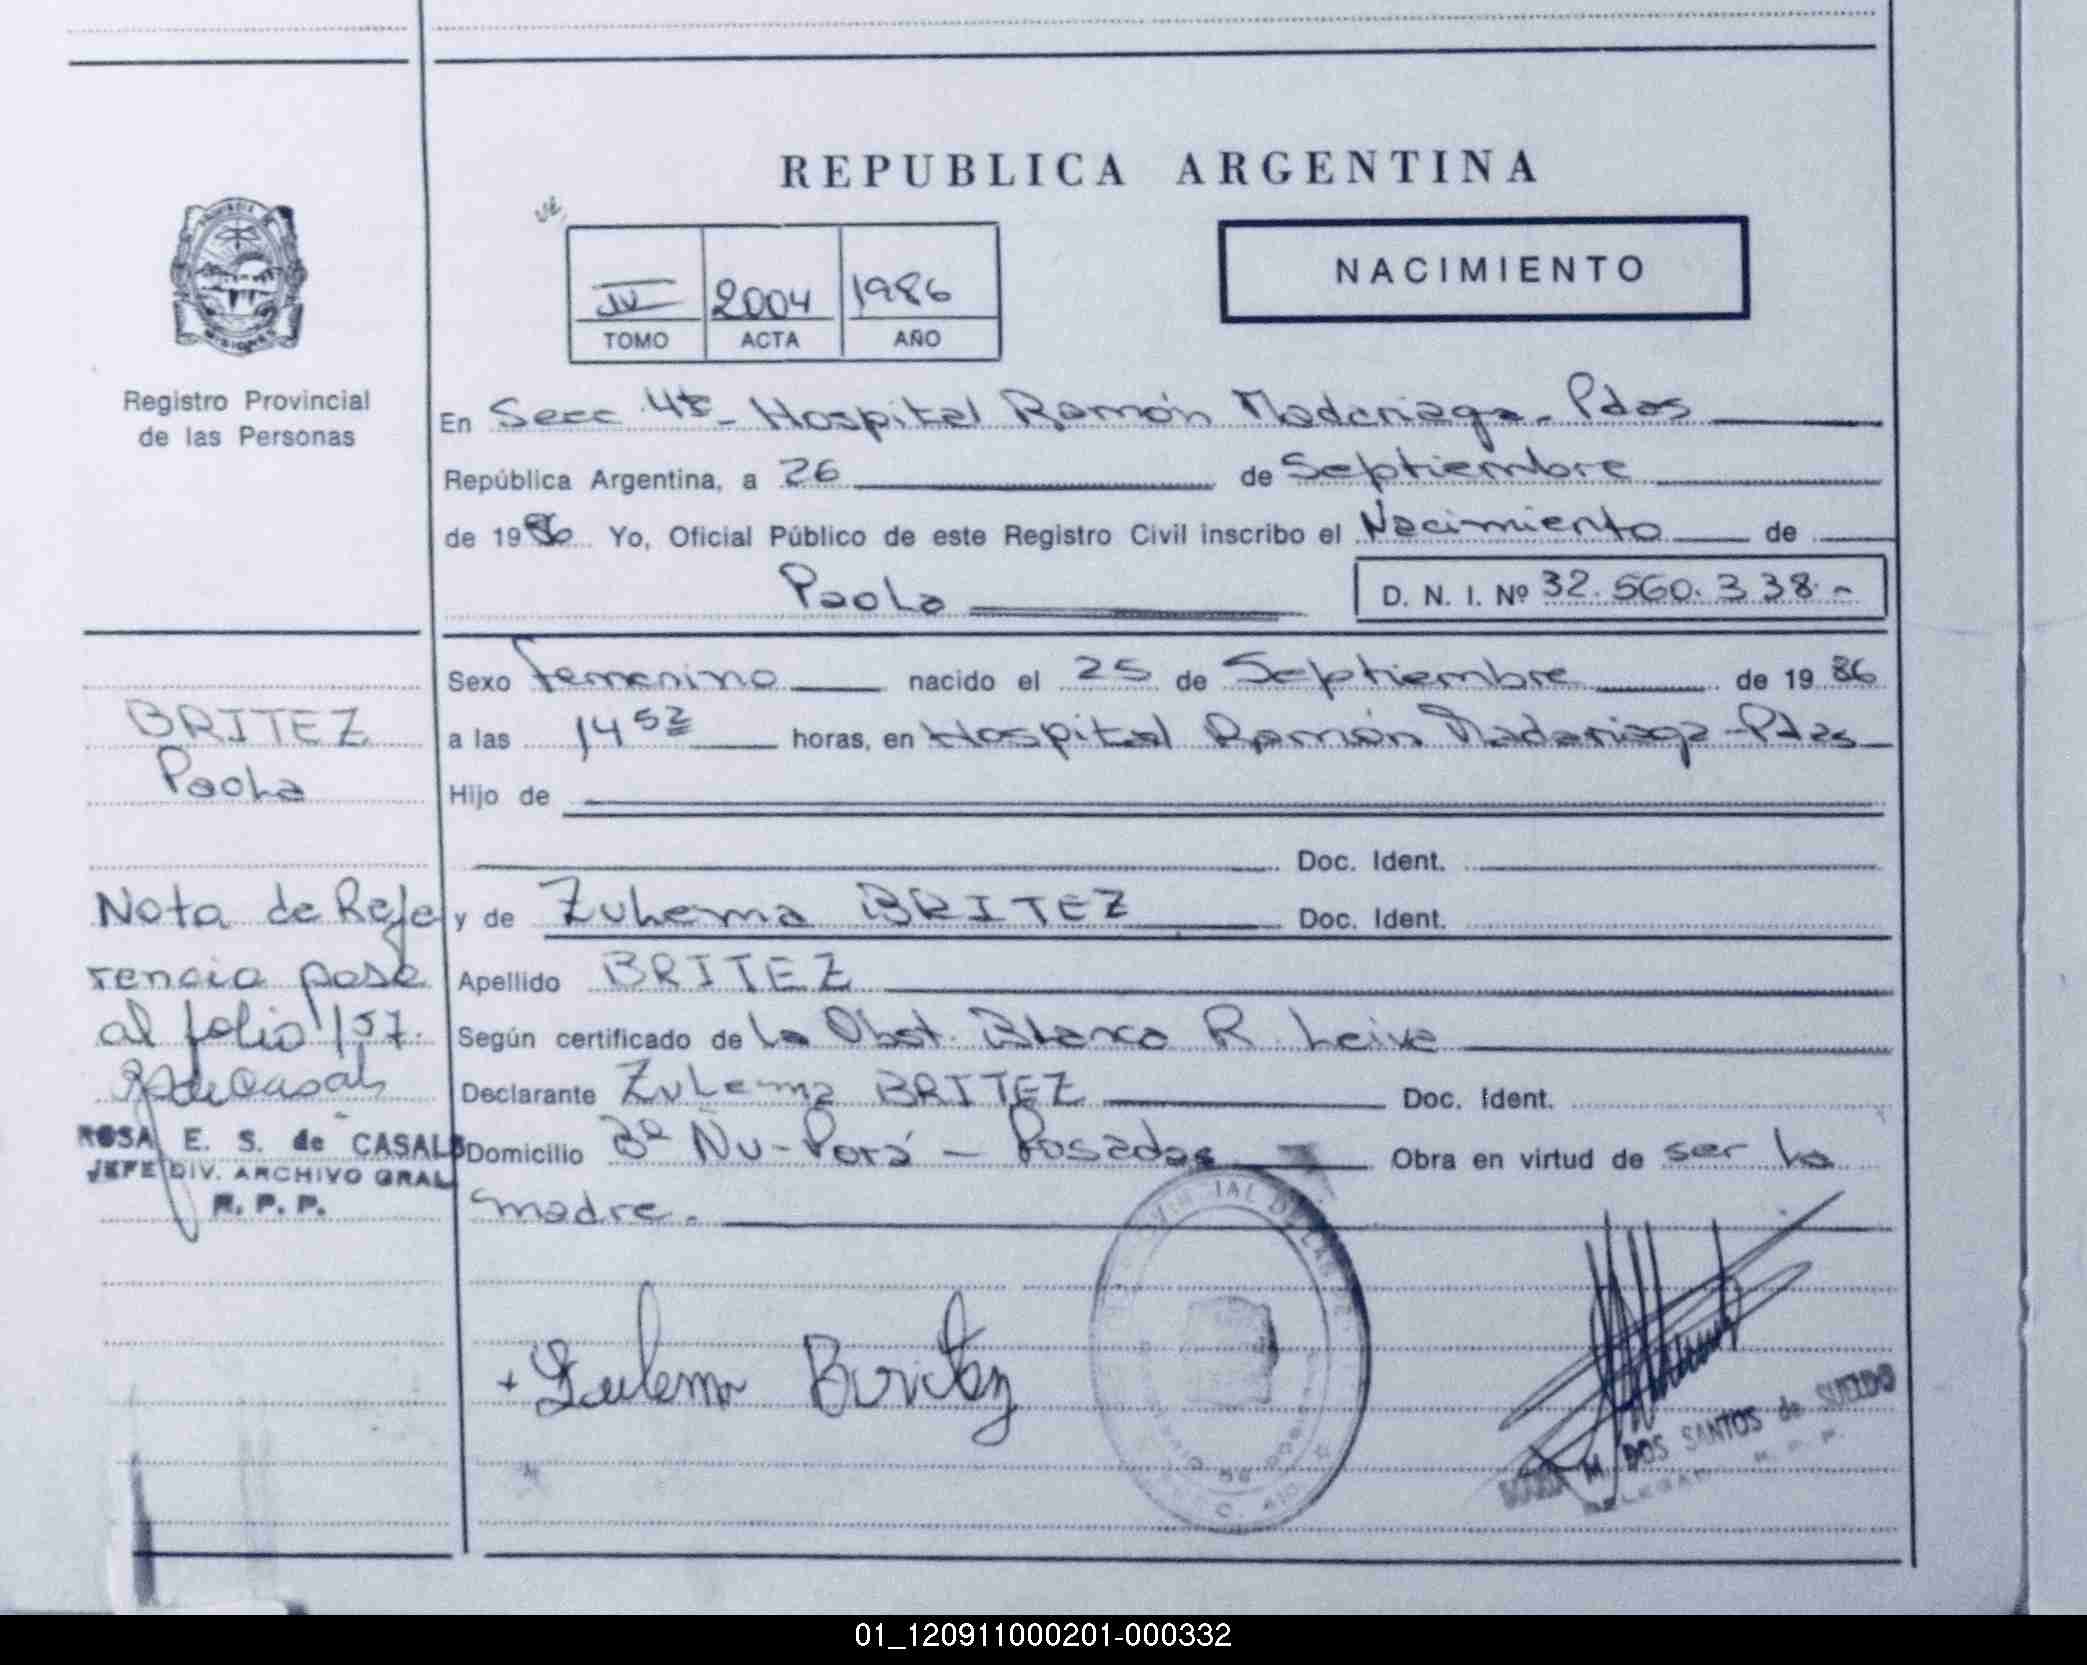 REPUBLICA ARGENTINA
NACIMIENTO
IV 2004 1986
TOMO ACTA AÑO
PROVINCIA DE
MISIONES
Registro Provincial
de las Personas
En Secc 4ta - Hospital Ramón Madariaga - Pdas
República Argentina, a 26 de Septiembre
de 1986 Yo, Oficial Público de este Registro Civil inscribo el Nacimiento de
Paola D. N. I. Nº 32.560.338.-
Sexo femenino nacido el 25 de Septiembre de 1986
a las 14 52 horas, en Hospital Ramón Madariaga - Pdas
Hijo de
Doc. Ident.
y de Zulema BRITEZ Doc. Ident.
Apellido BRITEZ
Según certificado de la Obst. Blanca R. Leiva
Declarante Zulema BRITEZ Doc. Ident.
Domicilio Bº Ñu-Porá - Posadas Obra en virtud de ser la
madre.
BRITEZ
Paola
Nota de Refe
rencia pase
al folio 157.
R de Casals
ROSA E. S. de CASALS
JEFE DIV. ARCHIVO GRAL
R. P. P.
+ Zulema Britez
M. DOS SANTOS de SUELDO
01_120911000201-000332